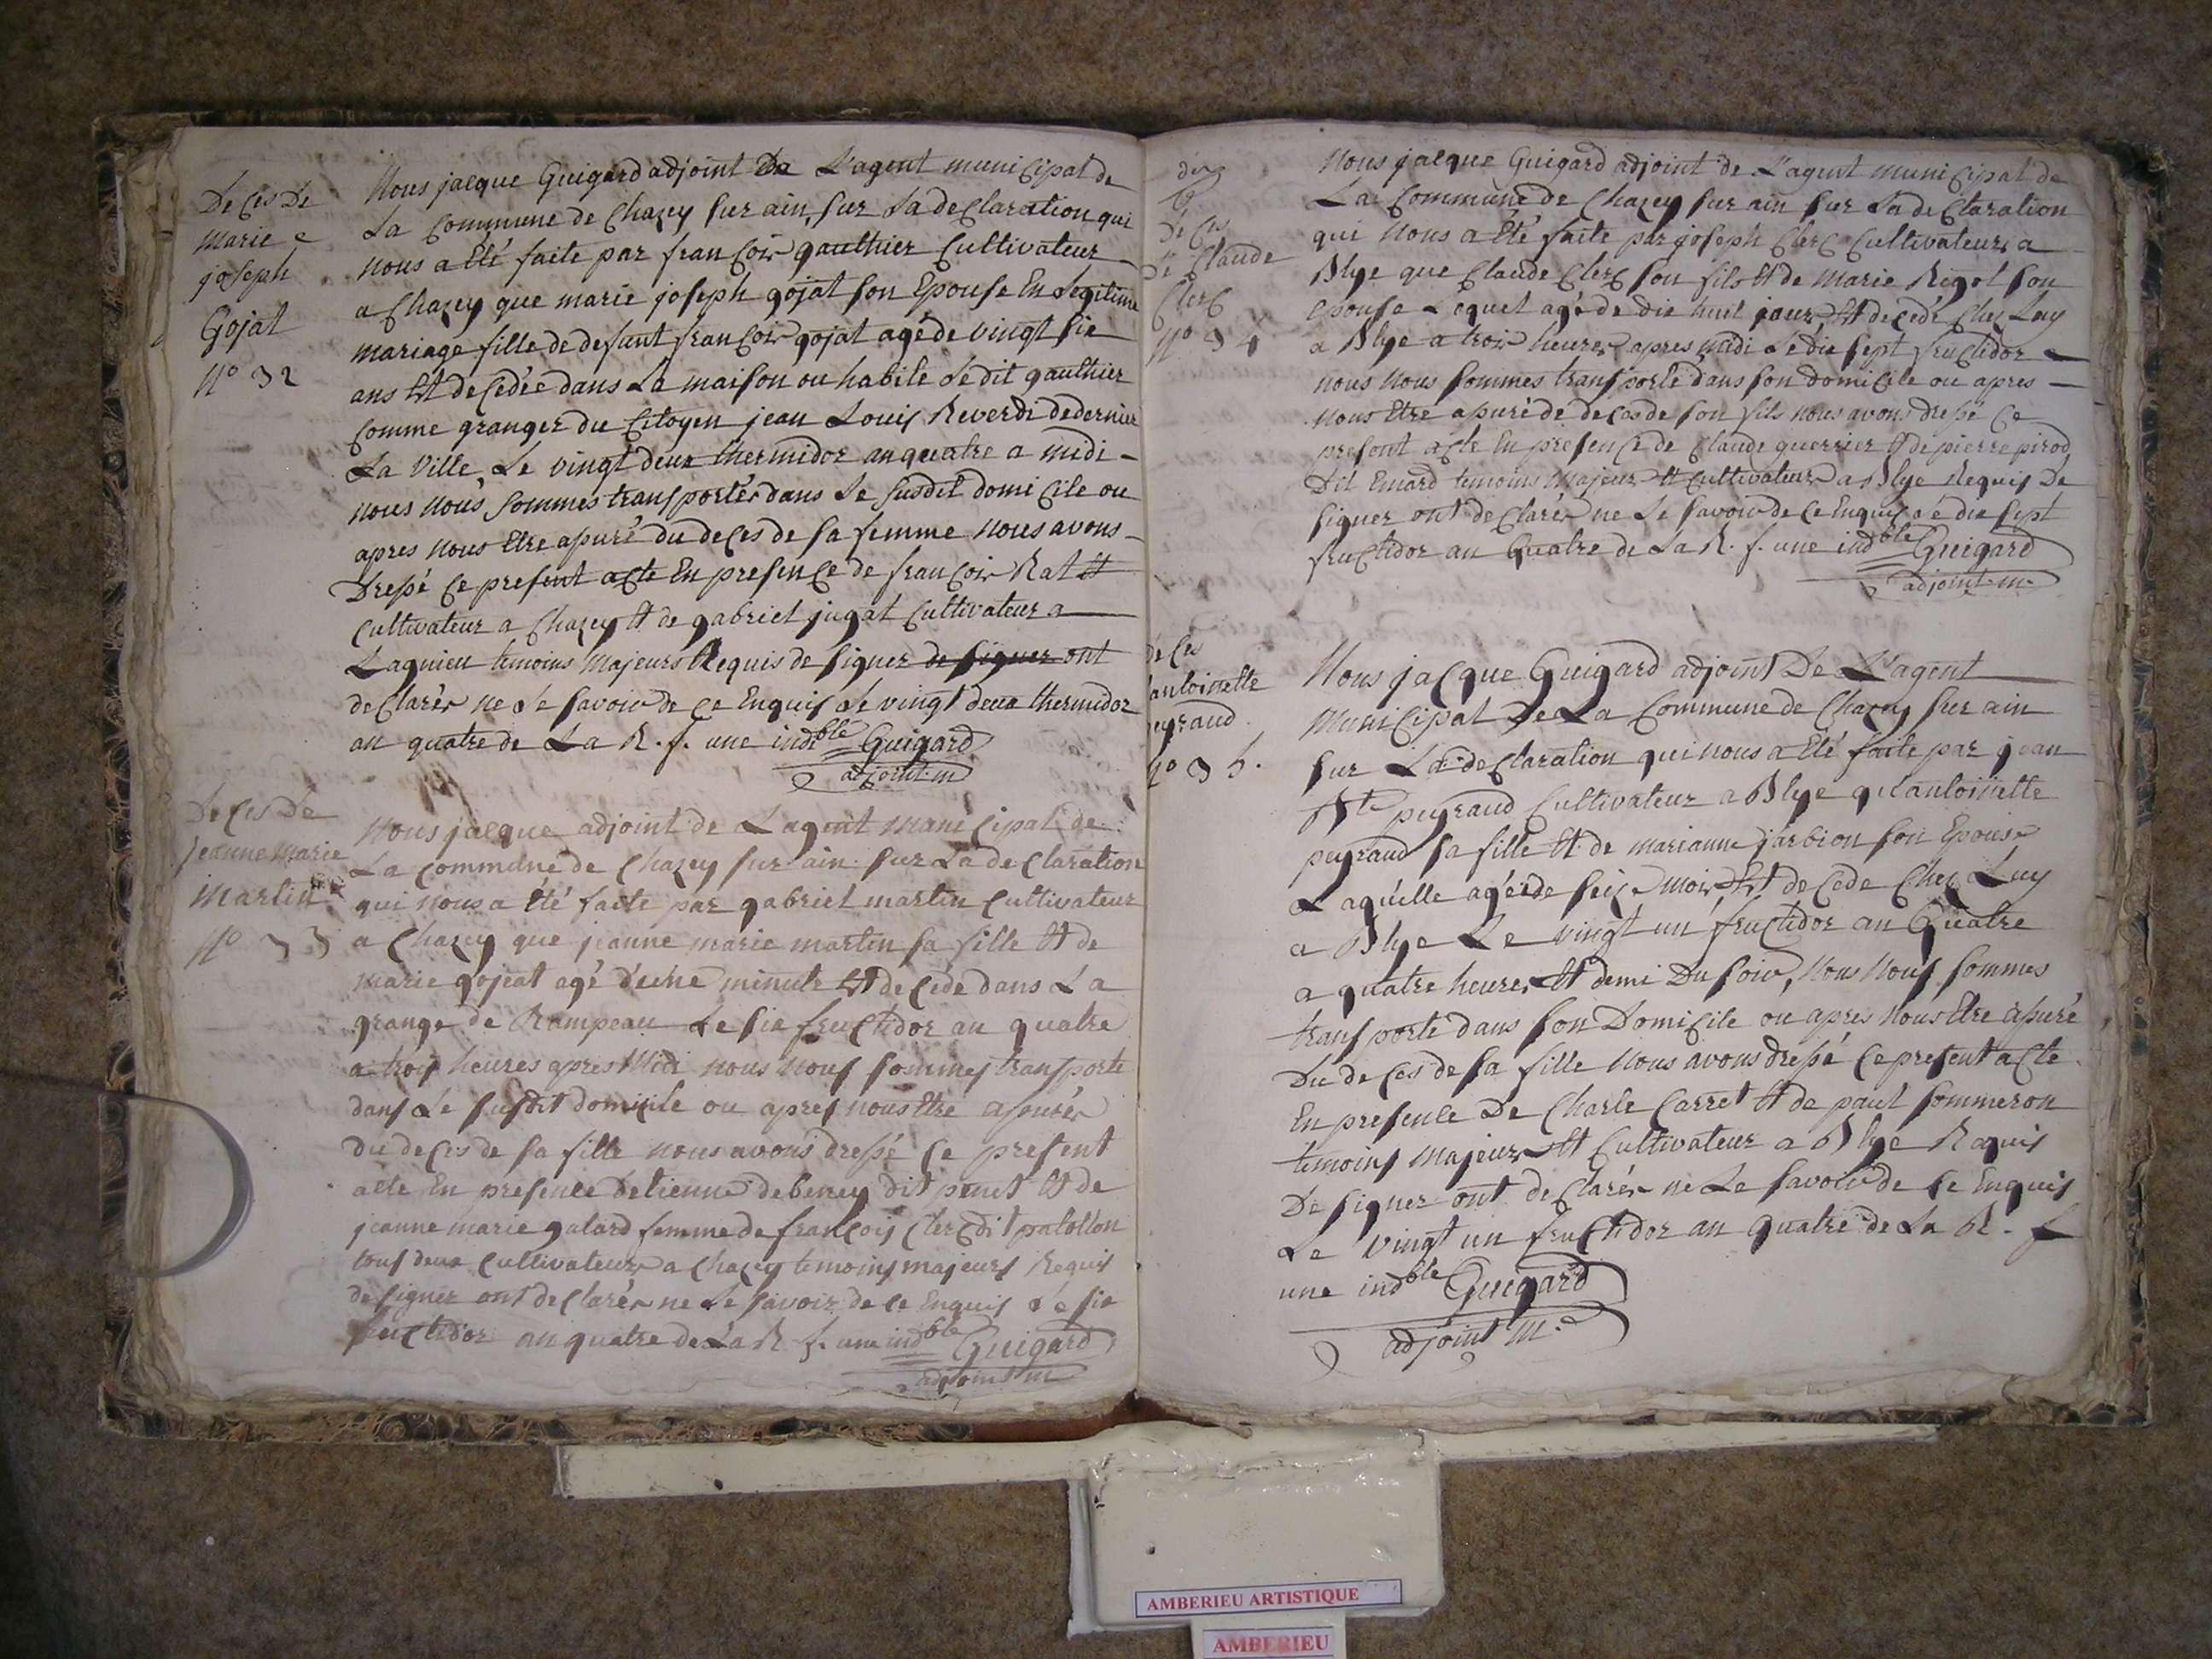 De Ces De
Marie
joseph
Gojat
N° 32
Nous jacque Guigard adjoint De L'agent muniCipal de
La Commune de Chazey sur ain, sur La deClaration qui
nous a Eté faite par franCois gauthier Cultivateur
a Chazey que marie joseph gojat son Epouse En Legitime
mariage fille de defunt franCois gojat agé de vingt six
ans Et deCedée dans La maison ou habite Le dit gauthier
Comme granger du Citoyen jean Louis Reverdi de derniere
La Ville, Le vingt deux thermidor an quatre a midi
nous nous sommes transportés dans Le susdit domiCile ou
apres nous Etre asuré du deCes de sa femme nous avons
Dressé Ce present acte En presenCe de franCois Rat Et
Cultivateur a Chazey Et de gabriel jugat Cultivateur a
Lagnieu temoins Majeurs Requis de signer de signer ont
deClarés ne Le savoir de Ce Enquis Le vingt deux thermidor
an quatre de La R. f. une indble Guigard
adjoint m
De Ces De
Jeanne Marie
Martin
N° 33
Nous jacque adjoint de L'agent MuniCipal de
La Commune de Chazey sur ain sur La deClaration
qui nous a Eté faite par gabriel martin Cultivateur
a Chazey que jeanne marie martin sa fille Et de
marie gojeat agé d'une minute Et deCéde dans La
grange de Rampeau Le six fruCtidor an quatre
a trois heures apres Midi nous nous sommes transporte
dans Le susdit domicile ou apres nous Etre asurés
du deCes de sa fille nous avons dressé Ce present
acte En presence detienne debeney dit penet Et de
jeanne marie galard femme de françois Clerc dit patollon
tous deux Cultivateurs a Chazey temoins majeurs Requis
de signer ont deClarés ne Le savoir de Ce Enquis Le six
fruCtidor an quatre de La R. f. une indble Guigard
adjoint m
dix
De Ces
De Claude
Clerc
N° 34
Nous jacque Guigard adjoint de L'agent muniCipal de
La Commune de Chazey sur ain sur La deClaration
qui nous a Eté faite par joseph Clerc Cultivateur a
Blye que Claude Clerc son fils Et de Marie Rigol son
Epouse Lequel agé de dix huit jours, Et deCedé Chez Luy
a Blye a trois heures apres midi Le dix sept fruCtidor
nous nous sommes transporté dans son domiCile ou apres
nous Etre asuré de deces de son fils nous avons dressé Ce
present acte En presenCe de Claude guerrier Et de pierre pirod
Dit Emard temoins Majeur Et Cultivateurs a Blye Requis De
signer ont deClarés ne Le savoir de Ce Enquis Le dix sept
fruCtidor an Quatre de La R. f. une indble Guigard
adjoint m
deCes
antoinette
peyraud
N° 35.
Nous jacque Guigard adjoint De L'agent
MuniCipal De La Commune de Chazey sur ain
sur La deClaration qui nous a Eté faite par jean
Bte peyraud Cultivateur a Blye qu'antoinette
peyraud sa fille Et de marianne jarbion son Epouse
Laquelle agée de seize mois Et deCede Chez Luy
a Blye Le vingt un fruCtidor an Quatre
a quatre heures Et demi Du soir, Nous Nous sommes
transporte dans son DomiCile ou apres nous Etre asuré
Du deCes de sa fille Nous avons dressé Ce present acte
En presence De Charle Carret Et de paul sommeron
temoins Majeurs Et Cultivateur a Blye Requis
De signer ont deClarés ne Le savoir de Ce Enquis
Le vingt un fruCtidor an Quatre de La R. f
une indble Guigard
adjoint M.
AMBERIEU ARTISTIQUE
AMBERIEU